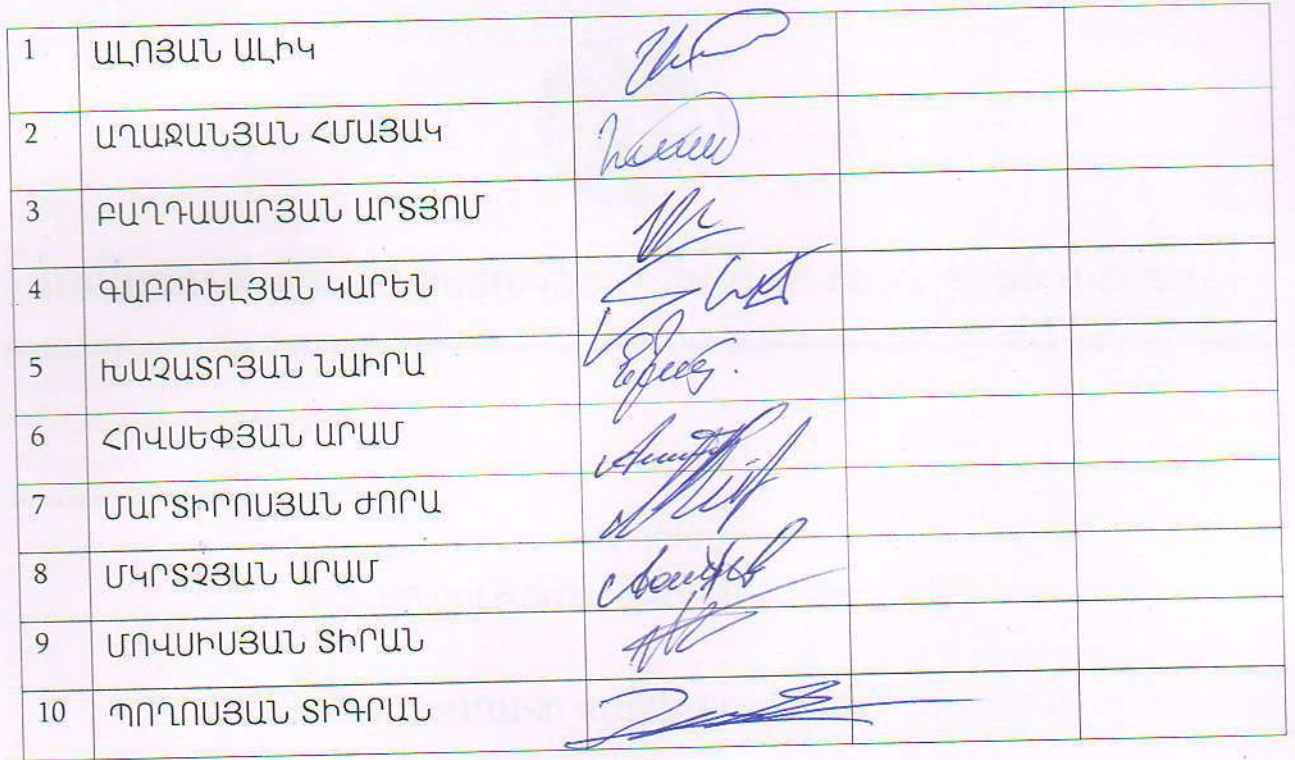 1 ԱԼՈՅԱՆ ԱԼԻԿ
2 ԱՂԱՋԱՆՅԱՆ ՀՄԱՅԱԿ
3 ԲԱՂԴԱՍԱՐՅԱՆ ԱՐՏՅՈՄ
4 ԳԱԲՐԻԵԼՅԱՆ ԿԱՐԵՆ
5 ԽԱՉԱՏՐՅԱՆ ՆԱԻՐԱ
6 ՀՈՎՍԵՓՅԱՆ ԱՐԱՄ
7 ՄԱՐՏԻՐՈՍՅԱՆ ԺՈՐԱ
8 ՄԿՐՏՉՅԱՆ ԱՐԱՄ
9 ՄՈՎՍԻՍՅԱՆ ՏԻՐԱՆ
10 ՊՈՂՈՍՅԱՆ ՏԻԳՐԱՆ